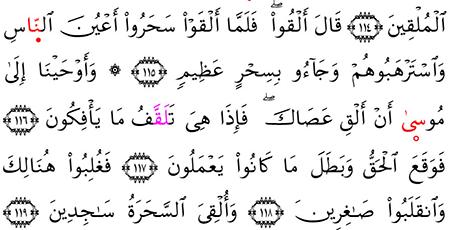 اَ۬لْمُلْقِينَ ۝١١٤ قَالَ أَلْقُواْۖ فَلَمَّآ أَلْقَوْاْ سَحَرُوٓاْ أَعْيُنَ اَ۬لنَّاسِ
وَاسْتَرْهَبُوهُمْ وَجَآءُو بِسِحْرٍ عَظِيمٖ ۝١١٥ ۞ وَأَوْحَيْنَآ إِلَىٰ
مُوسىٰٓ أَنْ أَلْقِ عَصَاكَۖ فَإِذَا هِىَ تَلَقَّفُ مَا يَأْفِكُونَ ۝١١٦
فَوَقَعَ اَ۬لْحَقُّ وَبَطَلَ مَا كَانُواْ يَعْمَلُونَ ۝١١٧ فَغُلِبُواْ هُنَالِكَ
وَانقَلَبُواْ صَٰغِرِينَ ۝١١٨ وَأُلْقِىَ اَ۬لسَّحَرَةُ سَٰجِدِينَ ۝١١٩